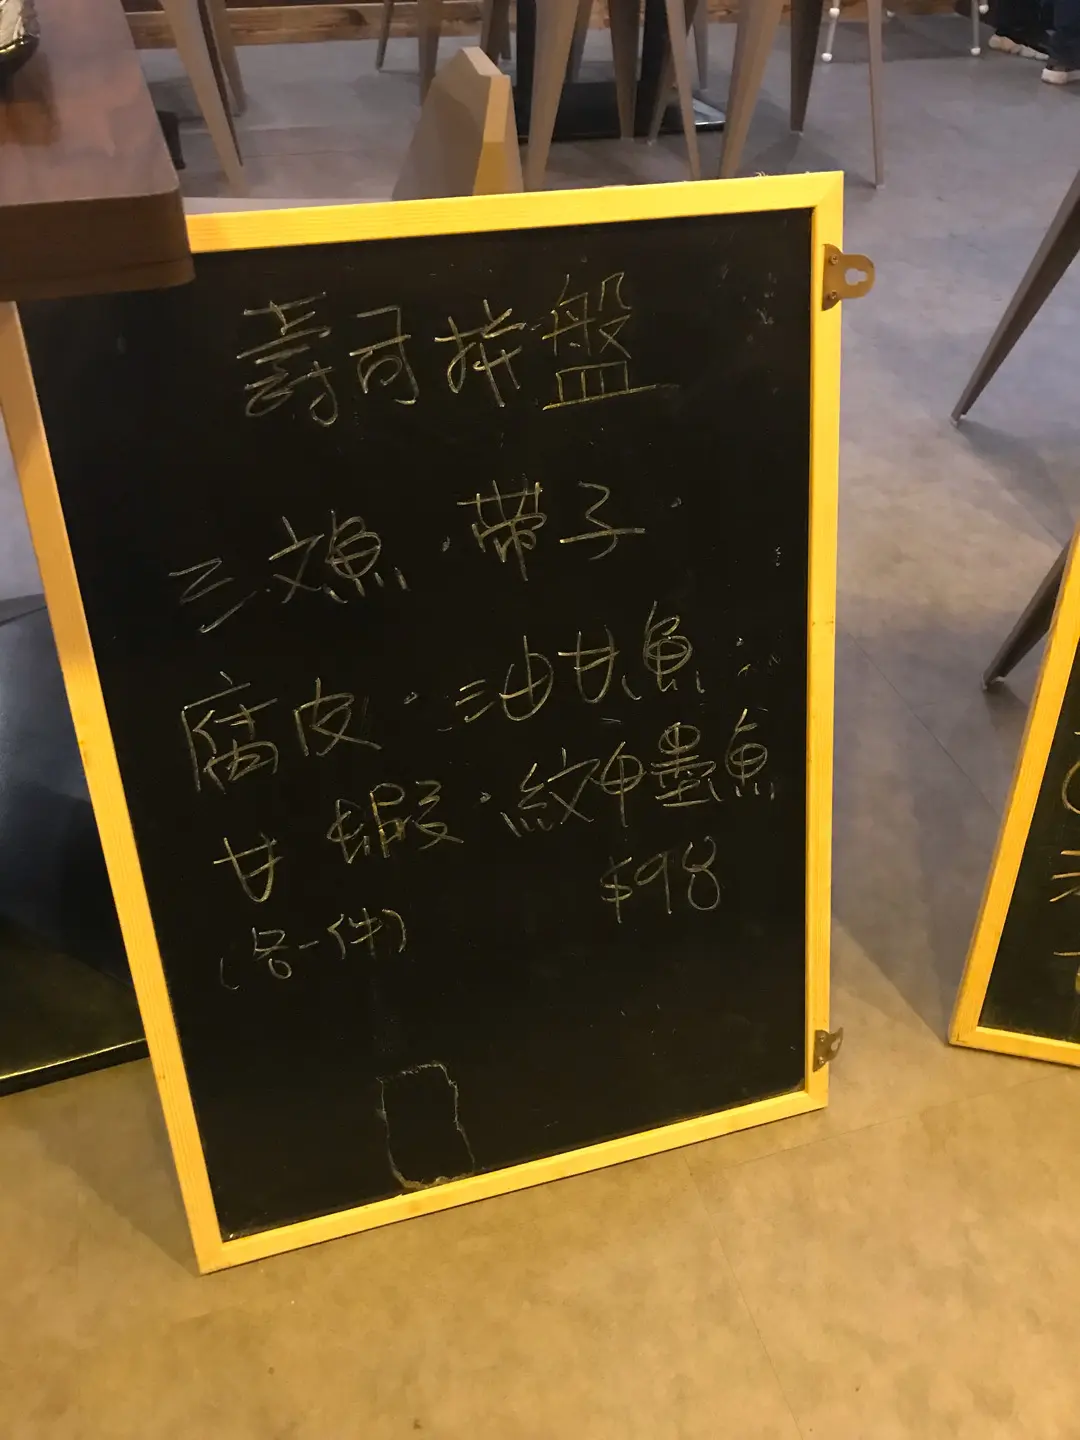 壽司拼盤
三文魚·帶子·
腐皮·油甘魚·
甘蝦·紋甲墨魚
$98
(各一件)